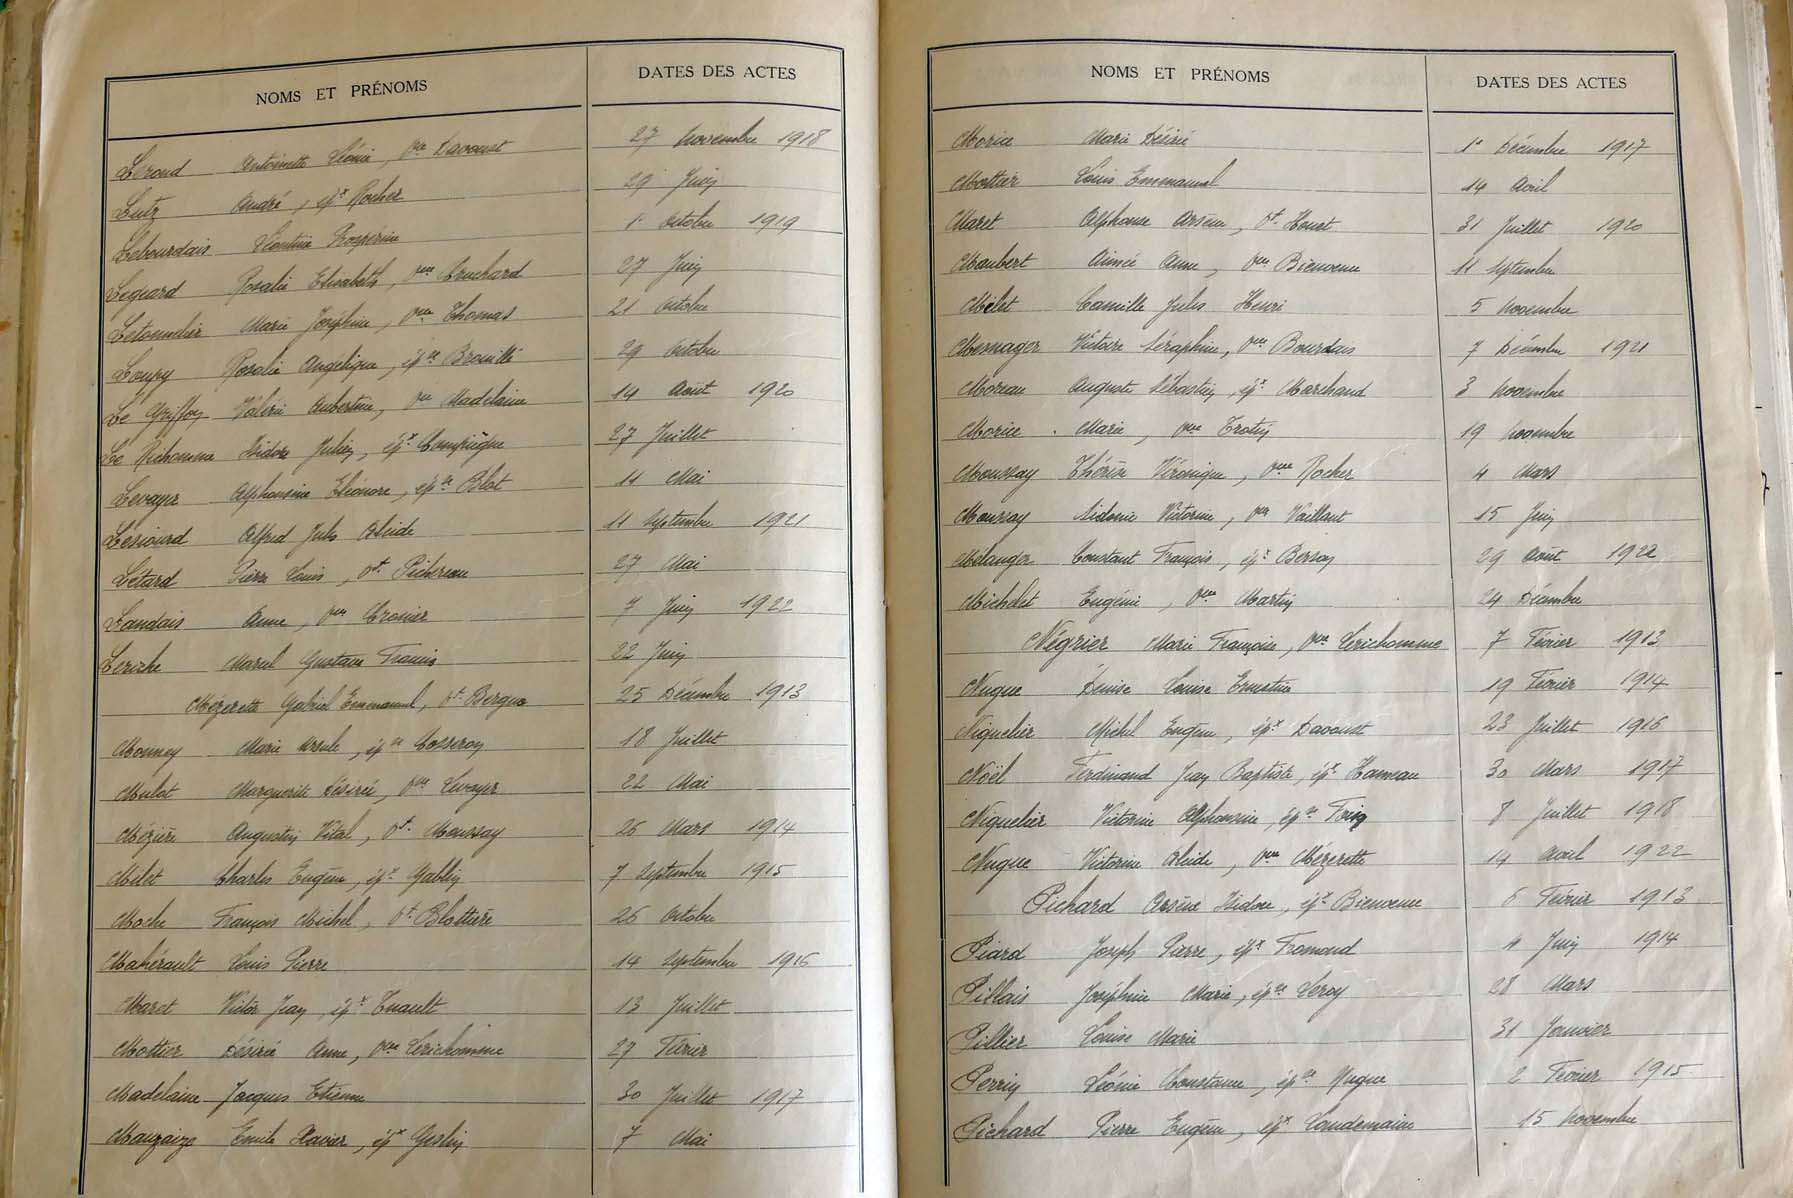 NOMS ET PRÉNOMS DATES DES ACTES
Leroud Antoinette Léonie, vve Davoust 27 Novembre 1918
Lutz André, épx Rocher 29 Juin
Lebourdais Léontine Prospérine 1er Octobre 1919
Legeard Rosalie Elisabeth, vve Cruchard 27 Juin
Letonnelier Marie Joséphine, vve Thomas 21 Octobre
Loupy Rosalie Angélique, épse Brouillé 29 Octobre
Le Griffon Valérie Aubertine, vve Madelaine 14 Août 1920
Le Richomme Isidore Julien, épx Compiègne 27 Juillet
Levayer Alphonsine Eléonore, épse Blot 11 Mai
Lesiourd Alfred Jules Alcide 11 Septembre 1921
Letard Pierre Louis, vf. Pichereau 27 Mai
Landais Anne, vve Cronier 7 Juin 1922
Leriche Marcel Gustave Francis 22 Juin
Mézerette Gabriel Emmanuel, vf. Bergue 25 Décembre 1913
Mounoy Marie Ursule, épse Cosseron 18 Juillet
Mulot Marguerite Désirée, vve Levayer 22 Mai
Mézière Augustin Vital, vf. Moussay 26 Mars 1914
Milet Charles Eugène, épx Gablin 7 Septembre 1915
Moche François Michel, vf. Blottière 26 Octobre
Mahérault Louis Pierre 14 Septembre 1916
Maret Victor Jean, épx Tuault 13 Juillet
Mottier Désirée Anne, vve Lerichomme 27 Février
Madelaine Jacques Etienne 30 Juillet 1917
Mauzaize Emile Xavier, épx Geslin 7 Mai
NOMS ET PRÉNOMS DATES DES ACTES
Morice Marie Désiré 1er Décembre 1917
Mottier Louis Emmanuel 14 Avril
Maret Alphonse Arsène, vf. Houet 31 Juillet 1920
Maubert Aimée Anne, vve Bienvenu 11 Septembre
Milet Camille Jules Henri 5 Novembre
Mesnager Victoire Séraphine, vve Bourdais 7 Décembre 1921
Moreau Auguste Sébastien, épx Marchand 3 Novembre
Morice Marie, vve Trotin 19 Novembre
Moussay Thérèse Véronique, vve Rocher 4 Mars
Moussay Sidonie Victorine, vve Vaillant 15 Juin
Mélanger Constant François, épx Berson 29 Août 1922
Michelet Eugénie, vve Martin 24 Décembre
Négrier Marie Françoise, vve Lerichomme 7 Février 1913
Nugue Denise Louise Ernestine 19 Février 1914
Niguelier Michel Eugène, épx Davoust 23 Juillet 1916
Noël Ferdinand Jean Baptiste, épx Hameau 30 Mars 1917
Niguelier Victorine Alphonsine, épse Foin 8 Juillet 1918
Nugue Victorine Alcide, vve Mézerette 14 Avril 1922
Pichard Arsène Isidore, épx Bienvenu 6 Février 1913
Piard Joseph Pierre, épx Fromond 4 Juin 1914
Pillais Joséphine Marie, épse Leroy 28 Mars
Pillier Louise Marie 31 Janvier
Perrin Léonie Constance, épse Nugue 2 Février 1915
Pichard Pierre Eugène, épx Laudemaine 15 Novembre